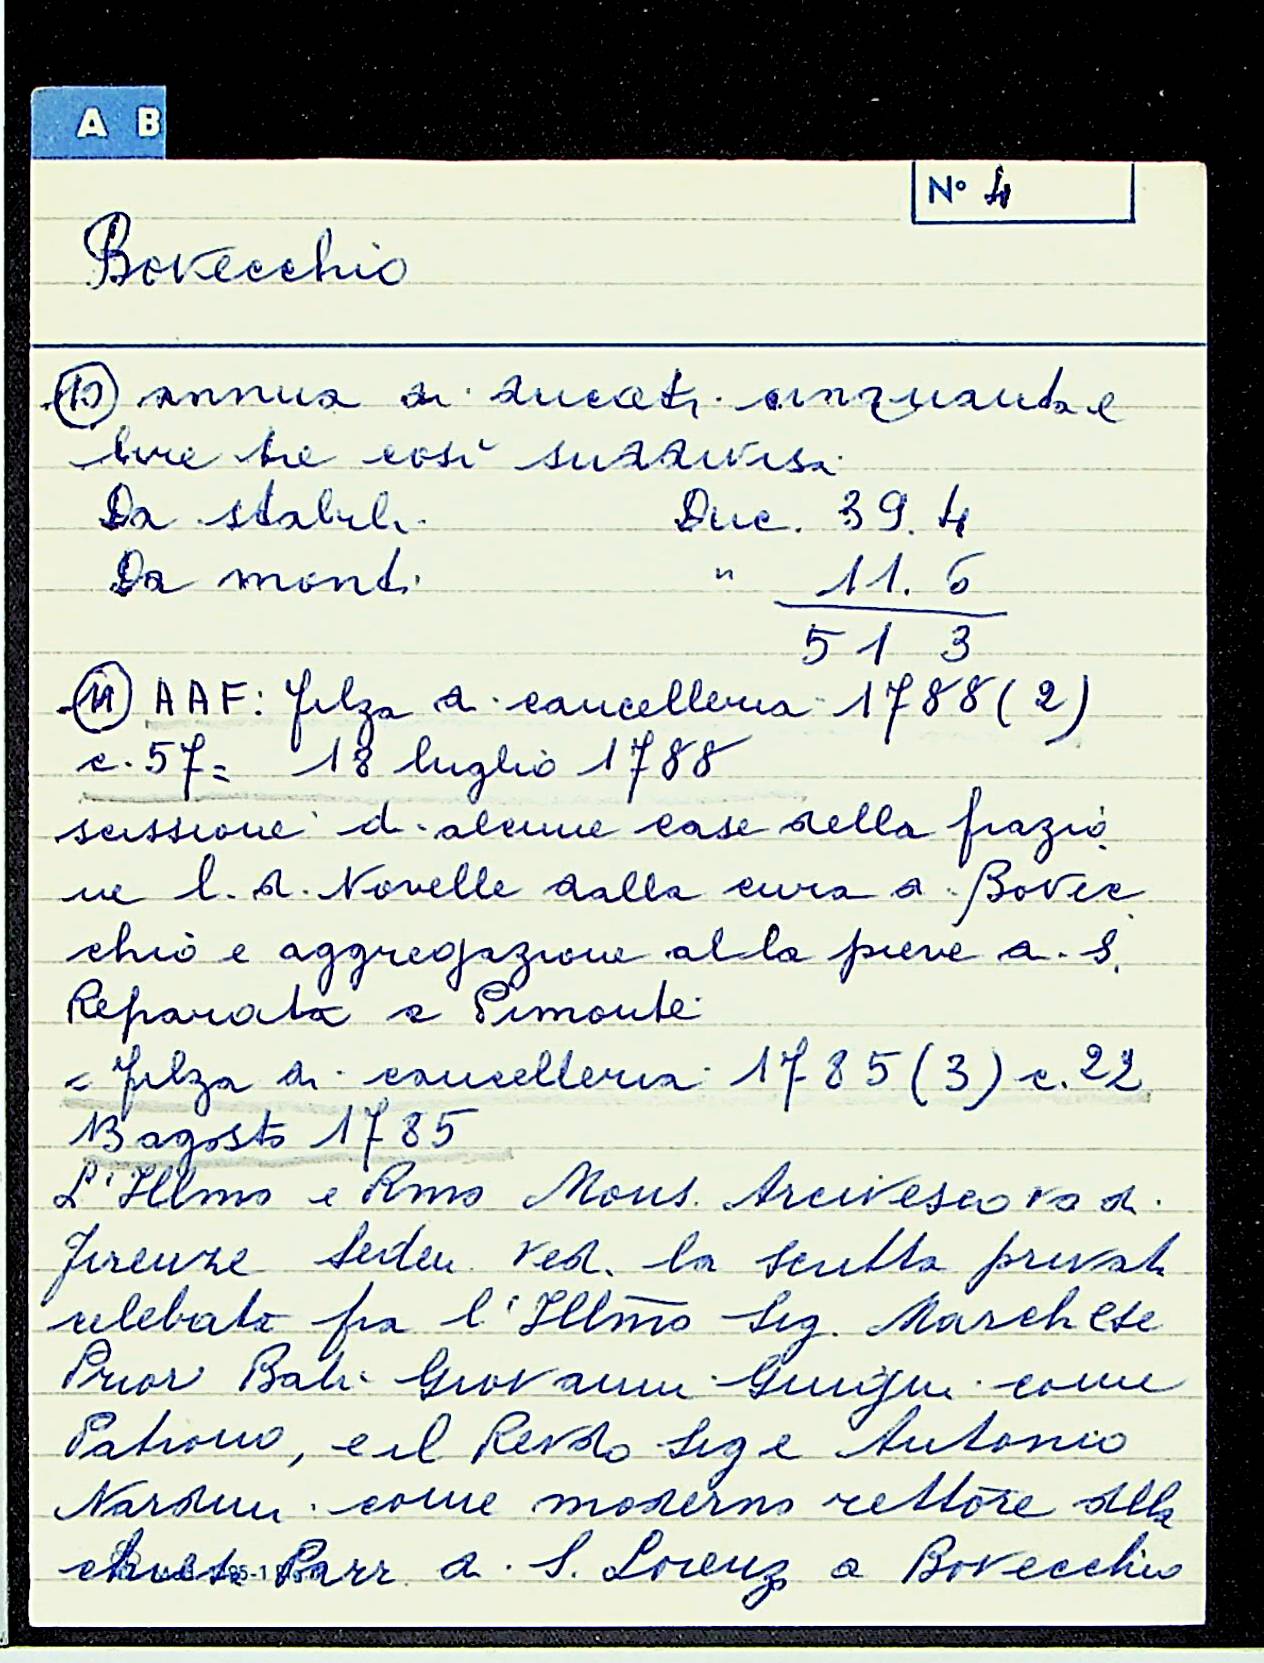 A B
Nº 4
Bovecchio
10 annua di ducati cinquanta e
lire tre così suddivisa:
Da stabili Duc. 39. 4
Da monti " 11. 6
51 3
11 AAF: filza di cancelleria 1788 (2)
c. 57= 18 luglio 1788
scissione di alcune case della frazio
ne l. d. Novelle dalla cura di Bovec
chio e aggregazione alla pieve di S.
Reparata a Pimonte
= filza di cancelleria 1785 (3) c. 22
13 agosto 1785
L'Illmo e Rmo Mons. Arcivescovo di
Firenze Ved. la scritta privata
celebata fra l'Illmo Sig. Marchese
Prior Bali Giovanni come
Patrono, e il Revdo Sig e Antonio
Nardini come moderno rettore della
Parr di S. Lorenz a Bovecchio